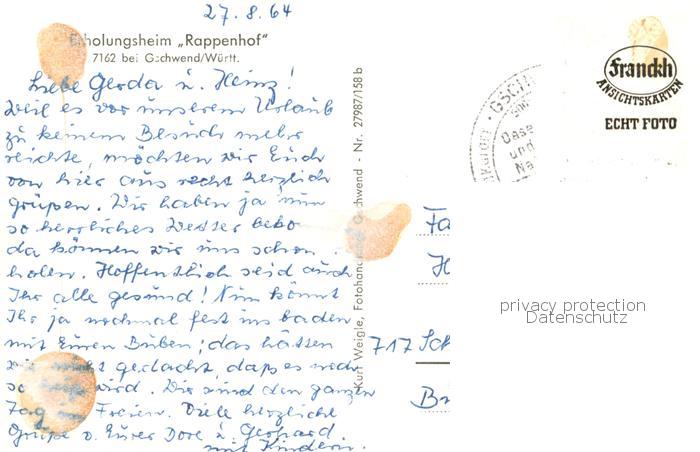 27.8.64
Erholungsheim „Rappenhof"
7162 bei Gschwend/Württ.
Liebe Gerda u. Heinz!
Weil es vor unserem Urlaub
zu keinem Besuch mehr
reichte, möchten wir Euch
von hier aus recht herzlich
grüßen. Wir haben ja nun
so herrliches Wetter beko
da können wir uns schon
holen. Hoffentlich seid auch
Ihr alle gesund! Nun könnt
Ihr ja nochmal fest ins baden
mit Euren Buben; das hätten
wir nicht gedacht, daß es noch
so wird. Wir sind den ganzen
Tag Freien. Viele herzliche
Grüße v. Eurer Dore u. Gerhard
mit Kindern.
Kurt Weigle, Fotohand Gschwend - Nr. 27987/158 b
Franckh
ANSICHTSKARTEN
ECHT FOTO
GSCH
Oase
und
Na
Fa
H
717 Sch
Br
privacy protection
Datenschutz